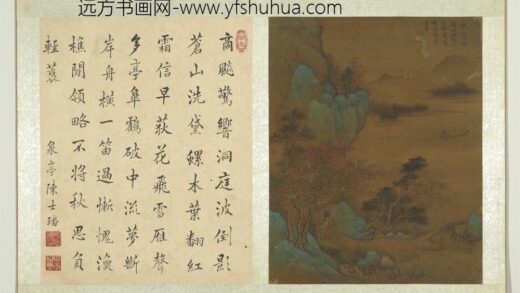 远方书画网-www.yfshuhua.com
商飇驚響洞庭波倒影
蒼山洗黛螺木葉翻紅
霜信早荻花飛雪雁聲
多亭皐鶴破中流夢斷
岸舟橫一笛過慚愧漁
樵閒領略不將秋思負
輕蓑
泉亭陳士璠